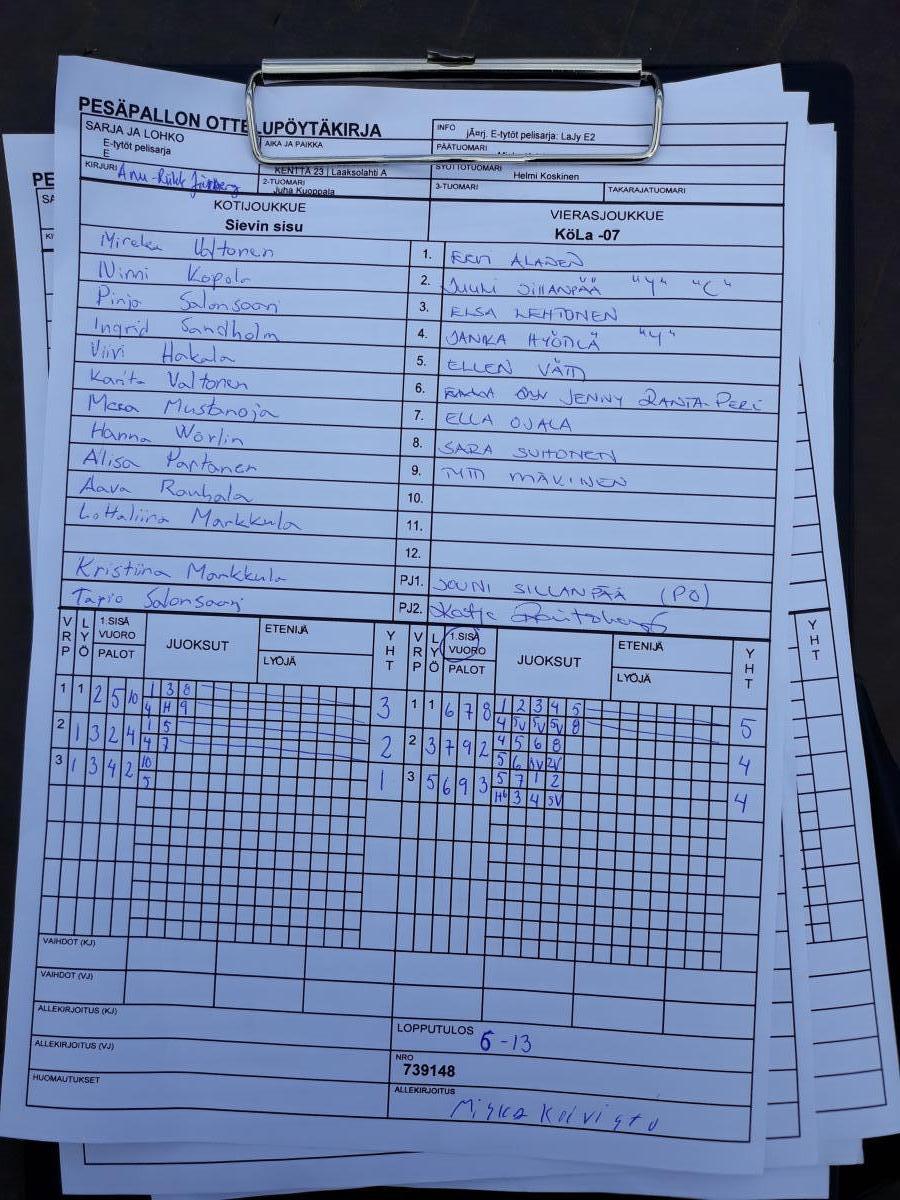 PESÄPALLON OTTELUPÖYTÄKIRJA
SARJA JA LOHKO
E-tytöt pelisarja
E
AIKA JA PAIKKA
KENTTÄ 23 | Laaksolahti A
INFO jÄ¤rj. E-tytöt pelisarja: LaJy E2
PÄÄTUOMARI
KIRJURI
2-TUOMARI
Juha Kuoppala
SYÖTTÖTUOMARI
Helmi Koskinen
3-TUOMARI
TAKARAJATUOMARI
KOTIJOUKKUE VIERASJOUKKUE
Sievin sisu KöLa -07
Mireka Valtonen 1. ALANEN
Ninni Kopola 2. JUULI SILLANPÄÄ "Y" "C"
Pinja Salonsaari 3. ELSA LEHTONEN
Ingrid Sandholm 4. "Y"
Viivi Hakala 5. ELLEN
Karita Valtonen 6. JENNY RANTA-PERE
Meea Mustanoja 7. ELLA OJALA
Hanna Wörlin 8. SARA SUITONEN
Alisa Partanen 9. MÄKINEN
Aava Rouhala 10.
Lottaliina Markkula 11.
12.
Kristiina Markkula PJ1. JOUNI SILLANPÄÄ (PÖ)
Tapio Salonsaari PJ2. Katja
VRP LYÖ 1.SISÄ VUORO PALOT JUOKSUT ETENIJÄ LYÖJÄ YHT VRP LYÖ 1.SISÄ VUORO PALOT JUOKSUT ETENIJÄ LYÖJÄ YHT
1 1 2 5 10 1 3 8 3 1 1 6 7 8 1 2 3 4 5 5
4 H 9 4 5V 5V 5V 8
2 1 3 2 4 1 5 2 2 3 7 9 2 4 5 6 8 4
4 7 5 6 1V 2V
3 1 3 4 2 10 1 3 5 6 9 3 5 7 1 2 4
5 H6 3 4 5V
VAIHDOT (KJ)
VAIHDOT (VJ)
ALLEKIRJOITUS (KJ)
LOPPUTULOS 6-13
ALLEKIRJOITUS (VJ)
NRO
739148
HUOMAUTUKSET
ALLEKIRJOITUS
Miska Koivisto